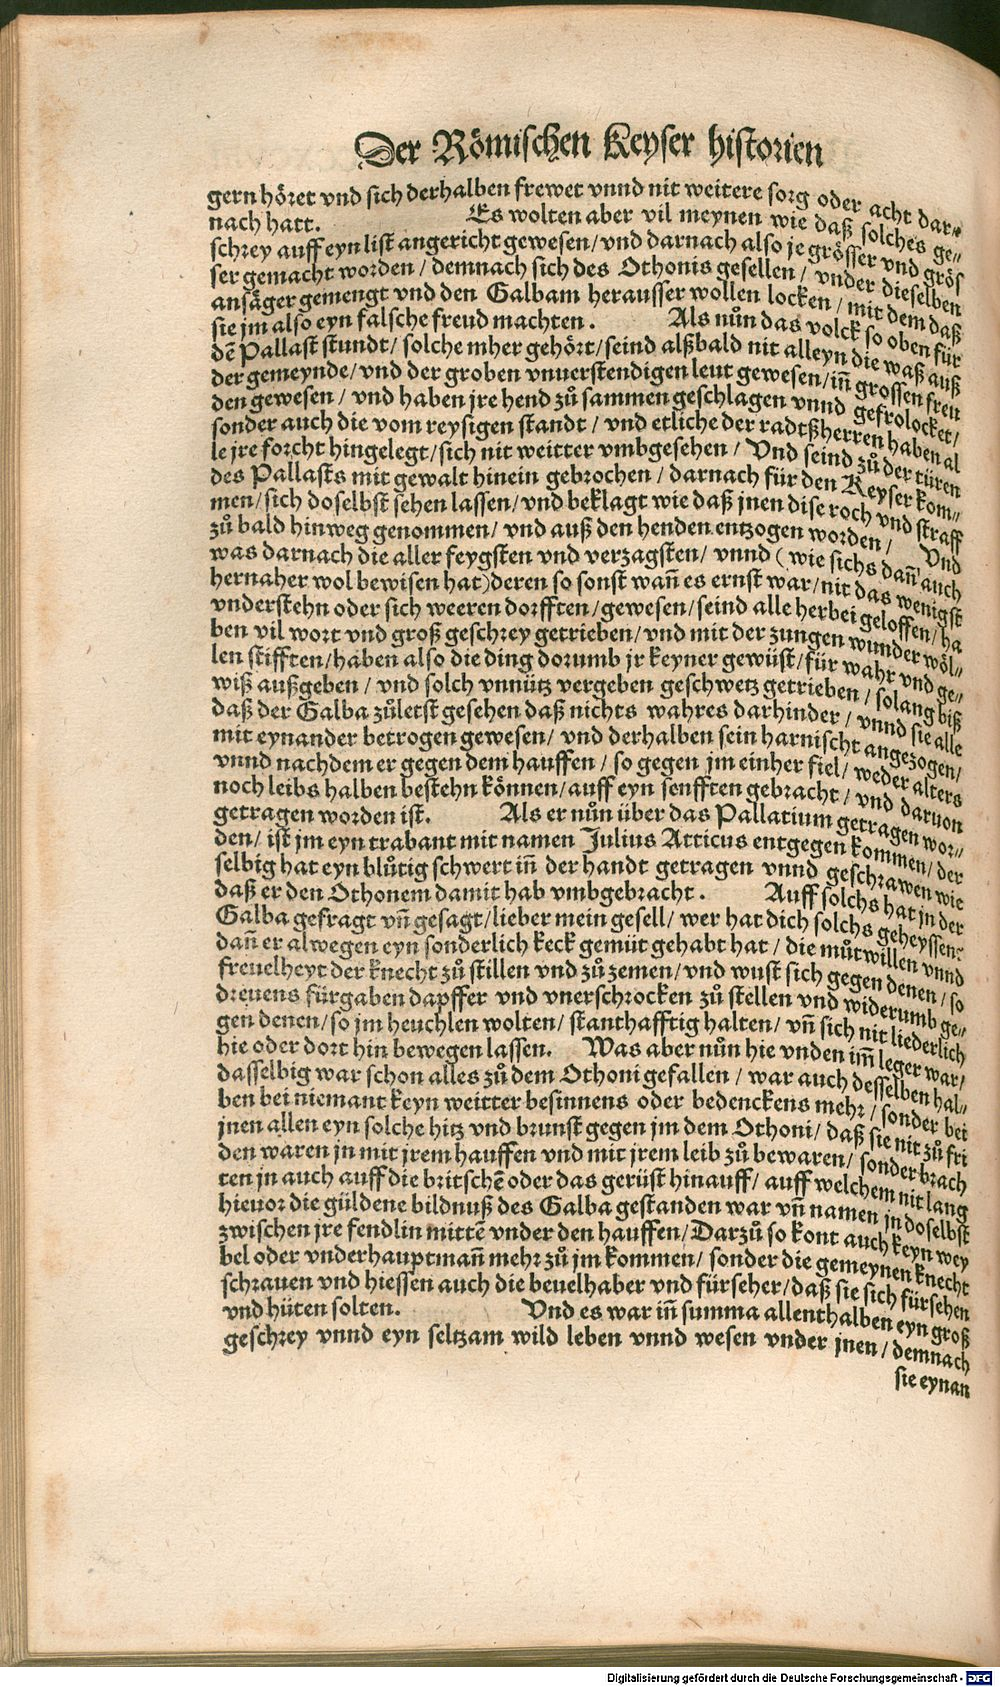 Der Römischen Keyser historien
gern höret vnd sich derhalben frewet vnnd nit weitere sorg oder acht dar⸗
nach hatt. Es wolten aber vil meynen wie daß solches ge⸗
schrey auff eyn list angericht gewesen/ vnd darnach also je grösser vnd grös
ser gemacht worden/ demnach sich des Othonis gesellen/ vnder dieselben
ansäger gemengt vnd den Galbam herausser wollen locken/ mit dem daß
sie jm also eyn falsche freud machten. Als nůn das volck so oben für
dē Pallast stundt/ solche mher gehört/ seind alßbald nit alleyn die waß auß
der gemeynde/ vnd der groben vnuerstendigen leut gewesen/ iñ grossen freu
den gewesen/ vnd haben jre hend zů sammen geschlagen vnnd gefrolocket/
sonder auch die vom reysigen standt/ vnd etliche der radtßherren haben al
le jre forcht hingelegt/ sich nit weitter vmbgesehen/ Vnd seind zů der türen
des Pallasts mit gewalt hinein gebrochen/ darnach für den Keyser kom⸗
men/ sich doselbst sehen lassen/ vnd beklagt wie daß jnen dise roch vnd straff
zů bald hinweg genommen/ vnd auß den henden entzogen worden/ Vnd
was darnach die aller feygsten vnd verzagsten/ vnnd (wie sichs dañ auch
hernaher wol bewisen hat) deren so sonst wañ es ernst war/ nit das wenigst
vnderstehn oder sich weeren dorfften/ gewesen/ seind alle herbei geloffen/ ha
ben vil wort vnd groß geschrey getrieben/ vnd mit der zungen wunder wöl⸗
len stifften/ haben also die ding dorumb jr keyner gewüst/ für wahr vnd ge⸗
wiß außgeben/ vnd solch vnnütz vergeben geschwetz getrieben/ solang biß
daß der Galba zůletst gesehen daß nichts wahres darhinder/ vnnd sie alle
mit eynander betrogen gewesen/ vnd derhalben sein harnischt angezogen/
vnnd nachdem er gegen dem hauffen/ so gegen jm einher fiel/ weder alters
noch leibs halben bestehn können/ auff eyn senfften gebracht/ vnd daruon
getragen worden ist. Als er nůn über das Pallatium getragen wor⸗
den/ ist jm eyn trabant mit namen Julius Atticus entgegen kommen/ der
selbig hat eyn blůtig schwert iñ der handt getragen vnnd geschrawen wie
daß er den Othonem damit hab vmbgebracht. Auff solchs hat jn der
Galba gefragt vñ gesagt/ lieber mein gesell/ wer hat dich solchs geheyssen?
dañ er alwegen eyn sonderlich keck gemüt gehabt hat/ die můtwillen vnnd
freuelheyt der knecht zů stillen vnd zů zemen/ vnd wust sich gegen denen/ so
dreuens fürgaben dapffer vnd vnerschrocken zů stellen vnd widerumb ge⸗
gen denen/ so jm heuchlen wolten/ standthafftig halten/ vñ sich nit liederlich
hie oder dort hin bewegen lassen. Was aber nůn hie vnden im̄ leger war/
dasselbig war schon alles zů dem Othoni gefallen/ war auch desselben hal⸗
ben bei niemant keyn weitter besinnens oder bedenckens mehr/ sonder bei
jnen allen eyn solche hitz vnd brunst gegen jm dem Othoni/ daß sie nit zů fri
den waren jn mit jrem hauffen vnd mit jrem leib zů bewaren/ sonder brach
ten jn auch auff die britschē oder das gerüst hinauff/ auff welchem nit lang
hieuor die güldene bildnuß des Galba gestanden war vñ namen jn doselbst
zwischen jre fendlin mittē vnder den hauffen/ Darzů so kont auch keyn wey
bel oder vnderhauptmañ mehr zů jm kommen/ sonder die gemeynen knecht
schrauen vnd hiessen auch die beuelhaber vnd fürseher/ daß sie sich fürsehen
vnd hüten solten. Vnd es war iñ summa allenthalben eyn groß
geschrey vnnd eyn seltzam wild leben vnnd wesen vnder jnen/ demnach
sie eynan
Digitalisierung gefördert durch die Deutsche Forschungsgemeinschaft - DFG